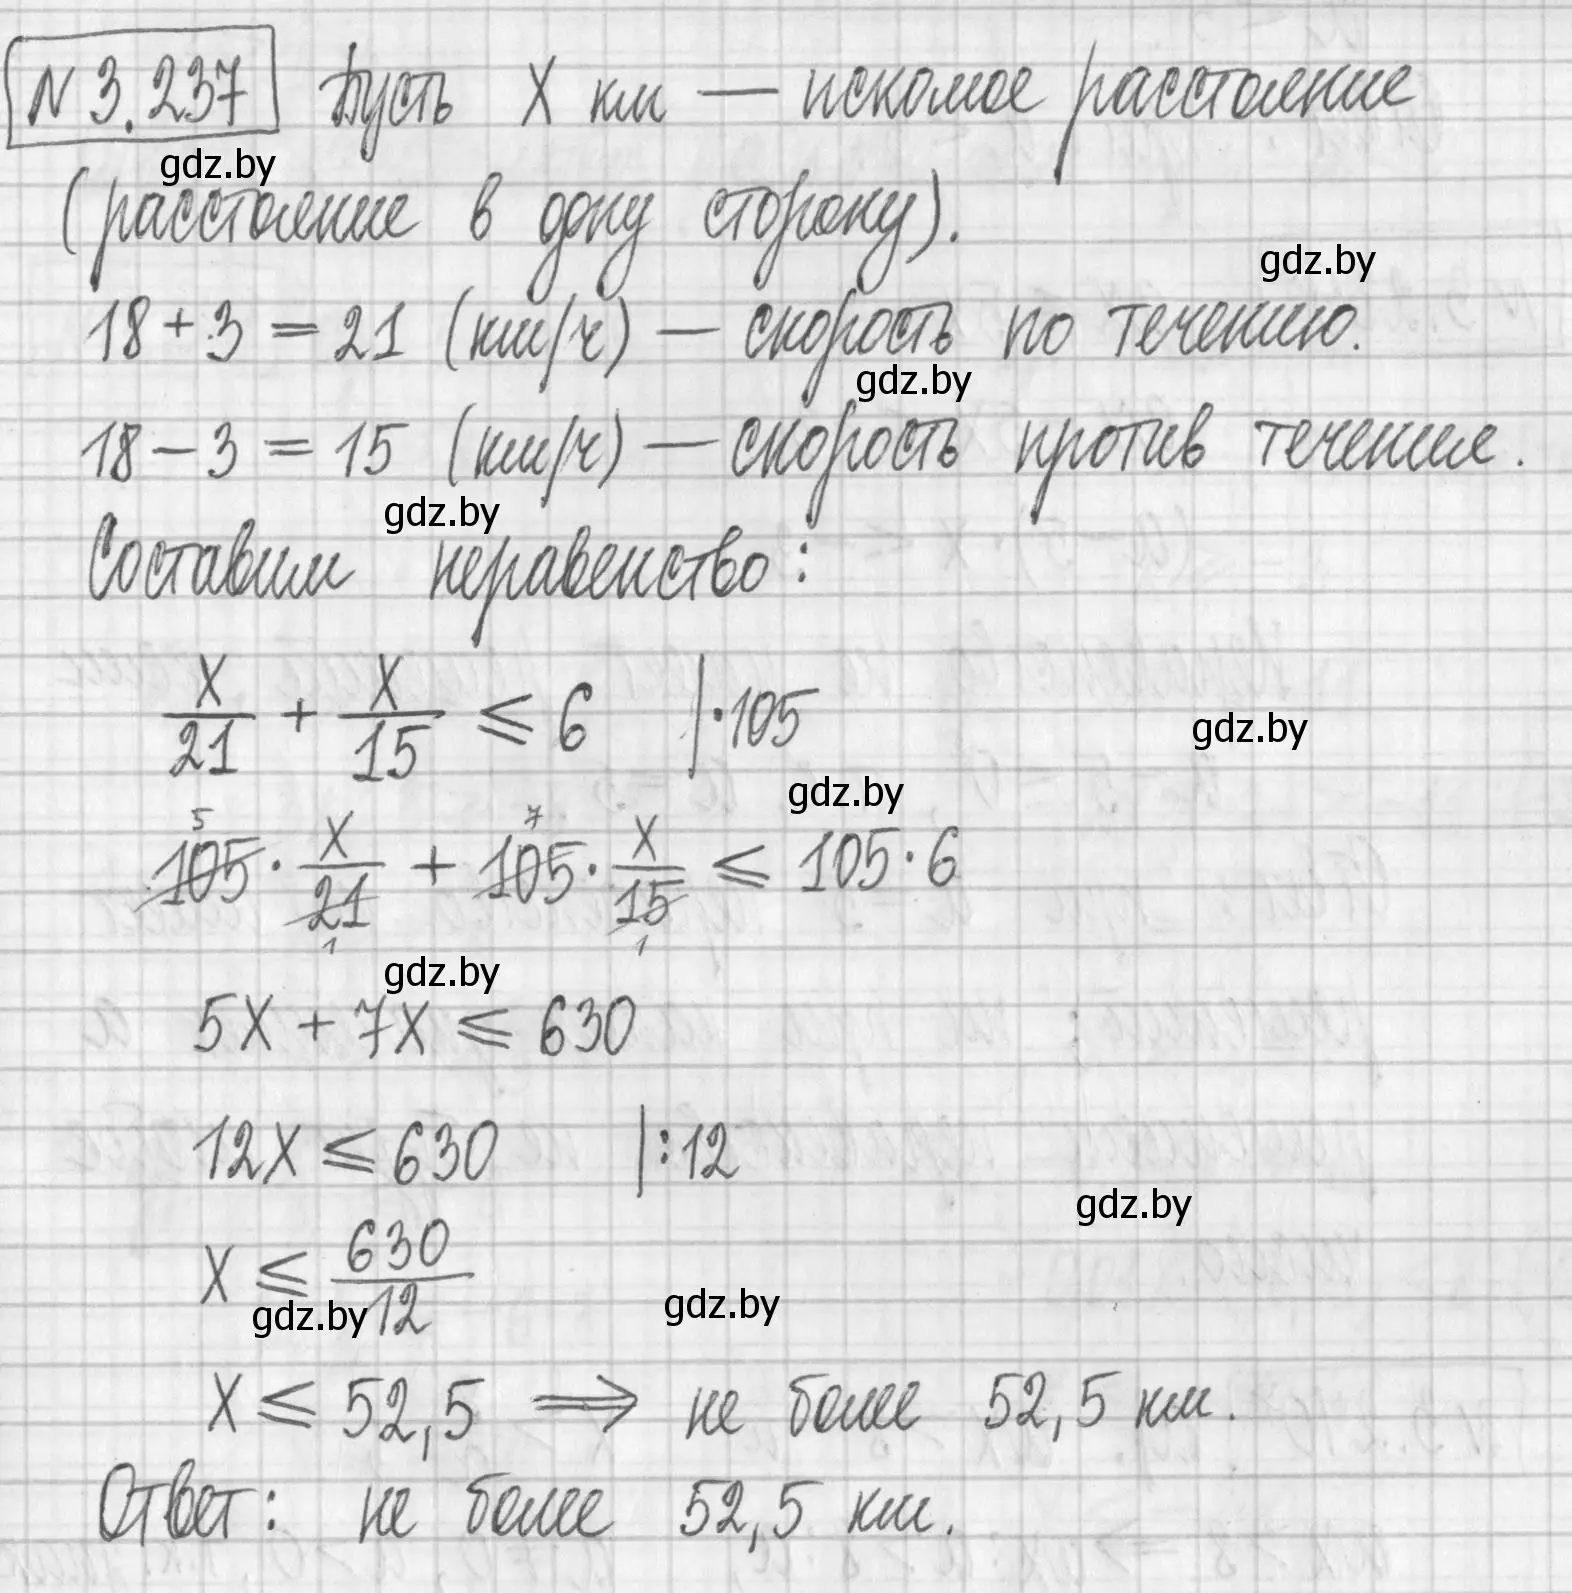 N 3.237 Пусть X км — искомое расстояние
gdz.by
(расстояние в одну сторону).
gdz.by
18 + 3 = 21 (км/ч) — скорость по течению.
gdz.by
18 − 3 = 15 (км/ч) — скорость против течения.
gdz.by
Составим неравенство:
X/21 + X/15 ≤ 6 |·105
gdz.by
gdz.by
5 7
105 · X/21 + 105 · X/15 ≤ 105·6
1 1
gdz.by
5X + 7X ≤ 630
12X ≤ 630 |:12
gdz.by
X ≤ 630/12
gdz.by gdz.by
X ≤ 52,5 ⟹ не более 52,5 км.
Ответ: не более 52,5 км.